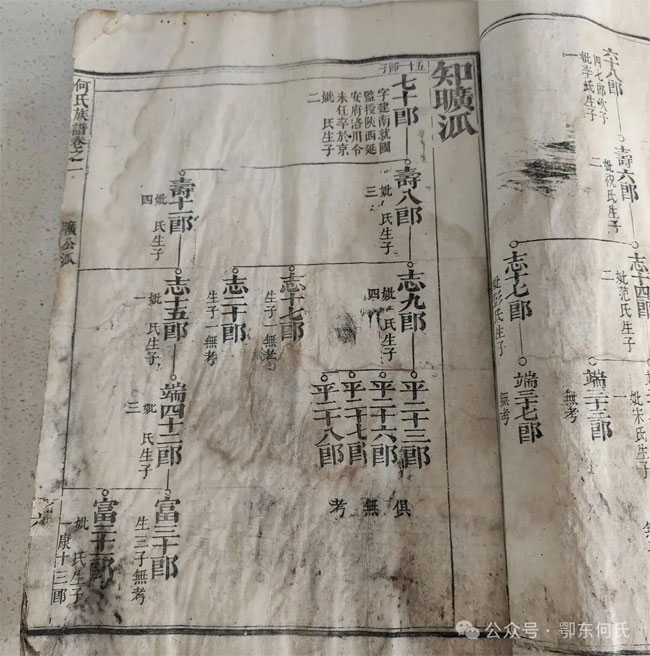 知曠派
五十一郎子
七十郎
字建南就國
監授陝西延
安府洛川令
未任卒於京
妣 氏生子
二
壽八郎
妣 氏生子
三
壽十一郎
妣 氏生子
四
志九郎
妣 氏生子
四
志十七郎
生子一無考
志二十郎
生子一無考
志十五郎
妣 氏生子
一
平二十三郎
平二十六郎
平二十七郎
平二十八郎
俱無考
端四十二郎
妣 氏生子
三
富三十郎
生三子無考
富三十二郎
妣 氏生子
一康十三郎
何氏族譜卷之一
曠公派
六十八郎
四七郎次子
妣李氏生子
一
壽六郎
妣祝氏生子
二
志十四郎
妣范氏生子
二
志十七郎
妣彭氏生子
妣宋氏生子
一
端二十三郎
無考
端三十七郎
無考
公众号·鄂东何氏